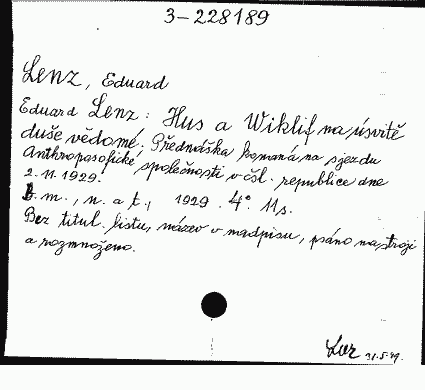 3-228189
Lenz, Eduard
Eduard Lenz: Hus a Wiklif na úsvitě
duše vědomé. Přednáška konaná na sjezdu
Anthroposofické společnosti v čsl. republice dne
2.11.1929.
B. m., n. a t., 1929. 4°. 11 s.
Bez titul. listu, název v nadpisu, psáno na stroji
a rozmnoženo.
31.5.49.